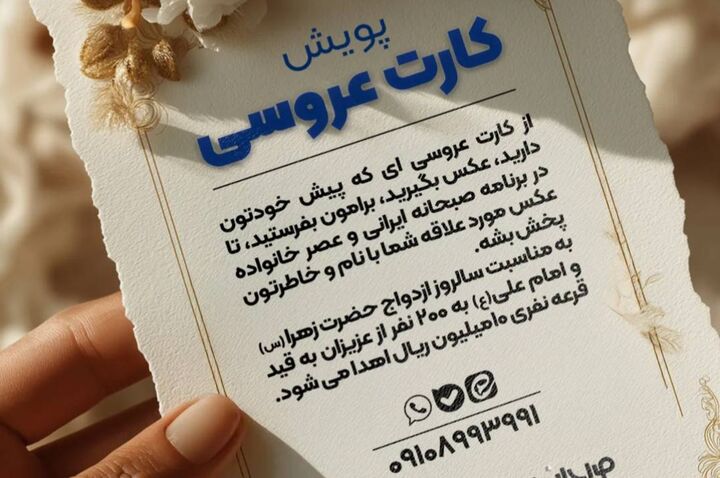 پویش
کارت عروسی
از کارت عروسی ای که پیش خودتون
دارید، عکس بگیرید، برامون بفرستید، تا
در برنامه صبحانه ایرانی و عصر خانواده
عکس مورد علاقه شما با نام و خاطرتون
پخش بشه.
به مناسبت سالروز ازدواج حضرت زهرا(س)
و امام علی(ع) به ۲۰۰ نفر از عزیزان به قید
قرعه نفری ۱۰میلیون ریال اهدا می شود.
۰۹۱۰۸۹۹۳۹۹۱